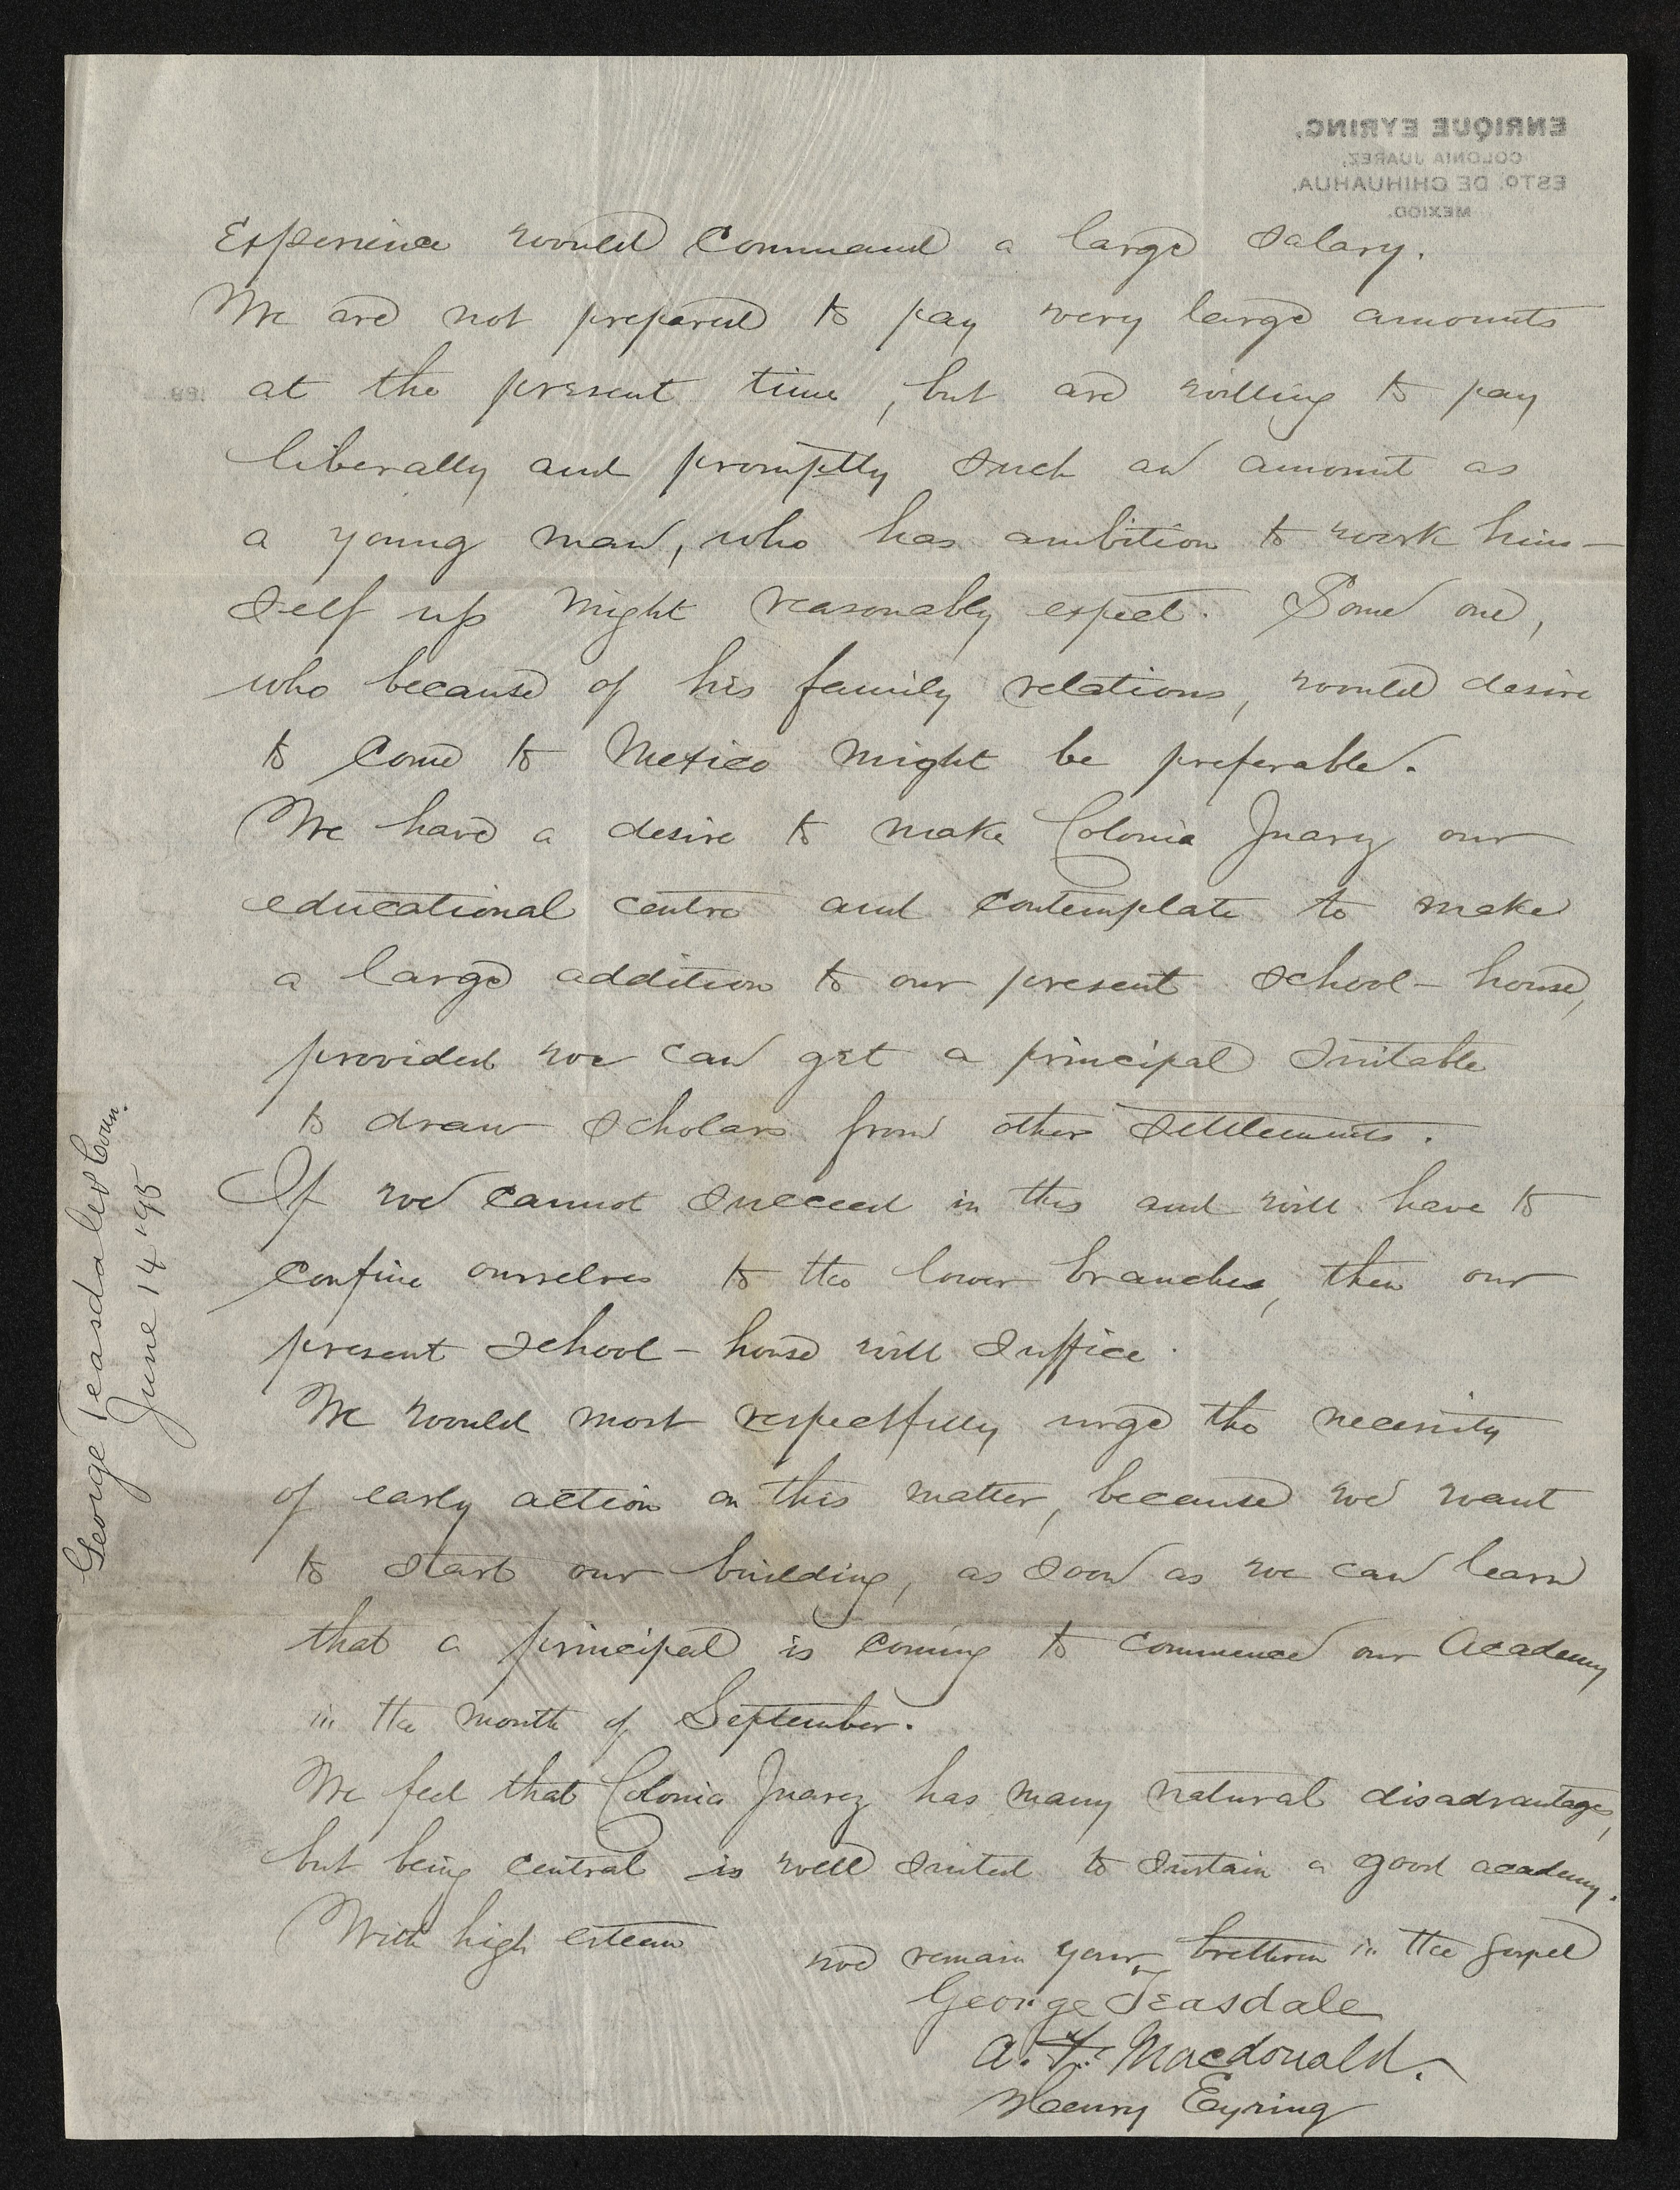 ENRIQUE EYRING,
COLONIA JUAREZ,
ESTO. DE CHIHUAHUA,
MEXICO.
Experience would Command a large salary.
We are not prepared to pay very large amounts
189
at the present time, but are willing to pay
liberally and promptly such an amount as
a young man, who has ambition to work him-
self up might reasonably expect. Some one,
who because of his family relations, would desire
to come to Mexico might be preferable.
We have a desire to make Colonia Juarez our
educational centre and contemplate to make
a large addition to our present school-house,
provided we can get a principal suitable
to draw scholars from other settlements.
If we cannot succeed in this and will have to
confine ourselves to the lower branches, then our
present school-house will suffice.
We would most respectfully urge the necessity
of early action on this matter, because we want
to start our building, as soon as we can learn
that a principal is coming to commence our Academy
in the month of September.
We feel that Colonia Juarez has many natural disadvantages,
but being central is well suited to sustain a good academy.
With high esteem
we remain your brethren in the gospel
George Teasdale
A. F. Macdonald.
Henry Eyring
George Teasdale & Coun.
June 14 '95